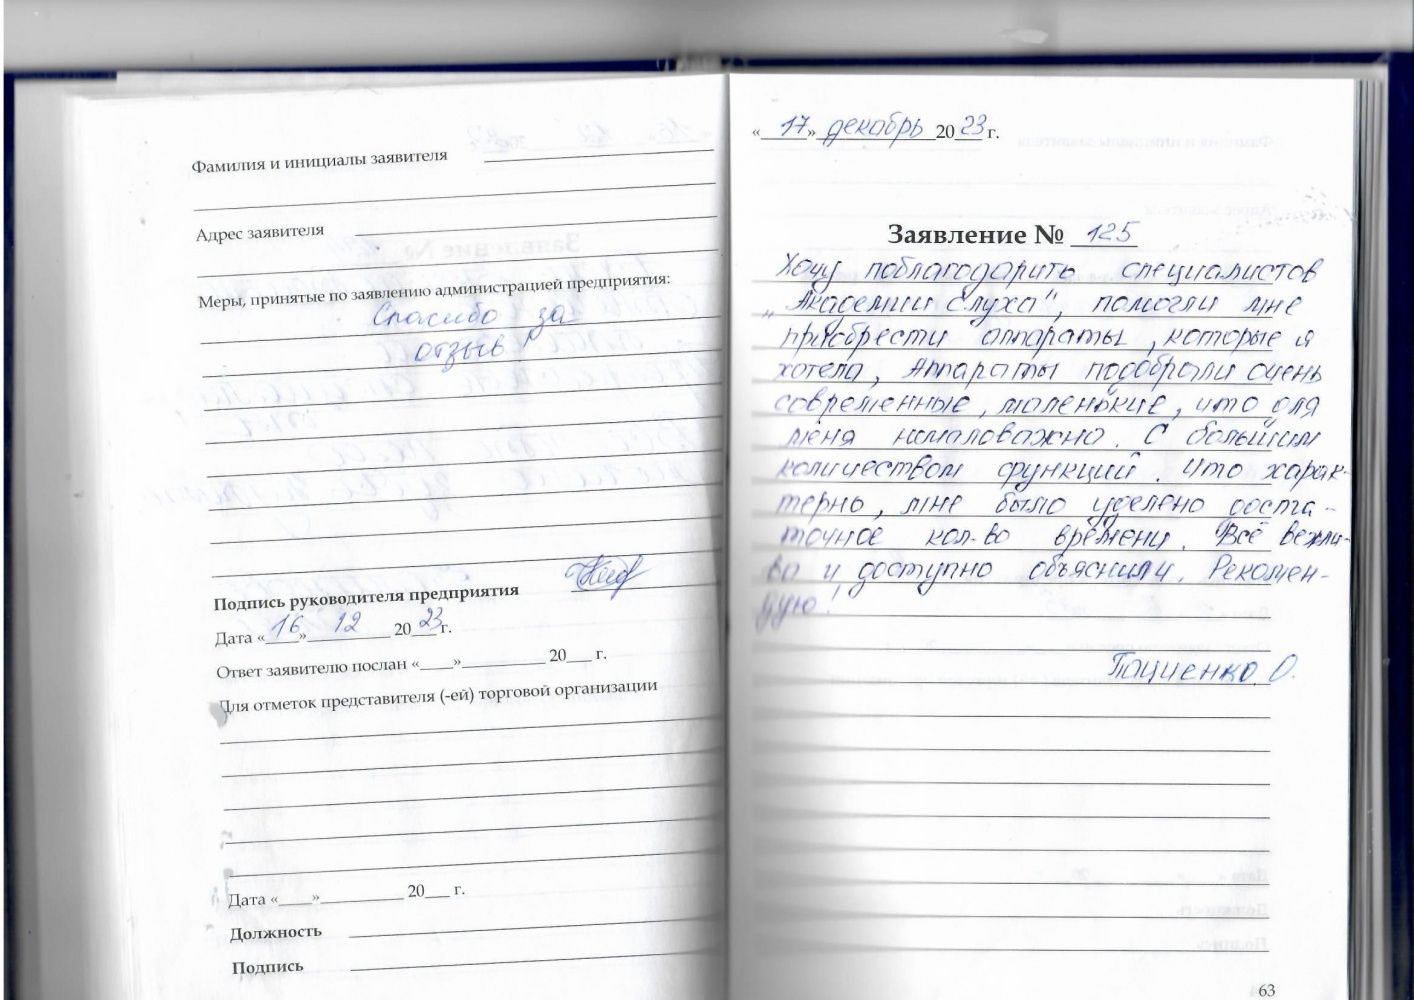 Фамилия и инициалы заявителя
Адрес заявителя
Меры, принятые по заявлению администрацией предприятия:
Спасибо за
отзыв
Подпись руководителя предприятия
Дата «16» 12 2023 г.
Ответ заявителю послан «____»__________ 20___ г.
Для отметок представителя (-ей) торговой организации
Дата «____»__________ 20___ г.
Должность
Подпись
«17» декабрь 2023 г.
Заявление № 125
Хочу поблагодарить специалистов
„Академии Слуха", помогли мне
приобрести аппараты, которые я
хотела, Аппараты подобрали очень
современные, маленькие, что для
меня немаловажно. С большим
количеством функций. Что харак-
терно, мне было уделено доста-
точное кол-во времени. Всё вежли-
во и доступно объяснили. Рекомен-
дую!
Пациенко О.
63